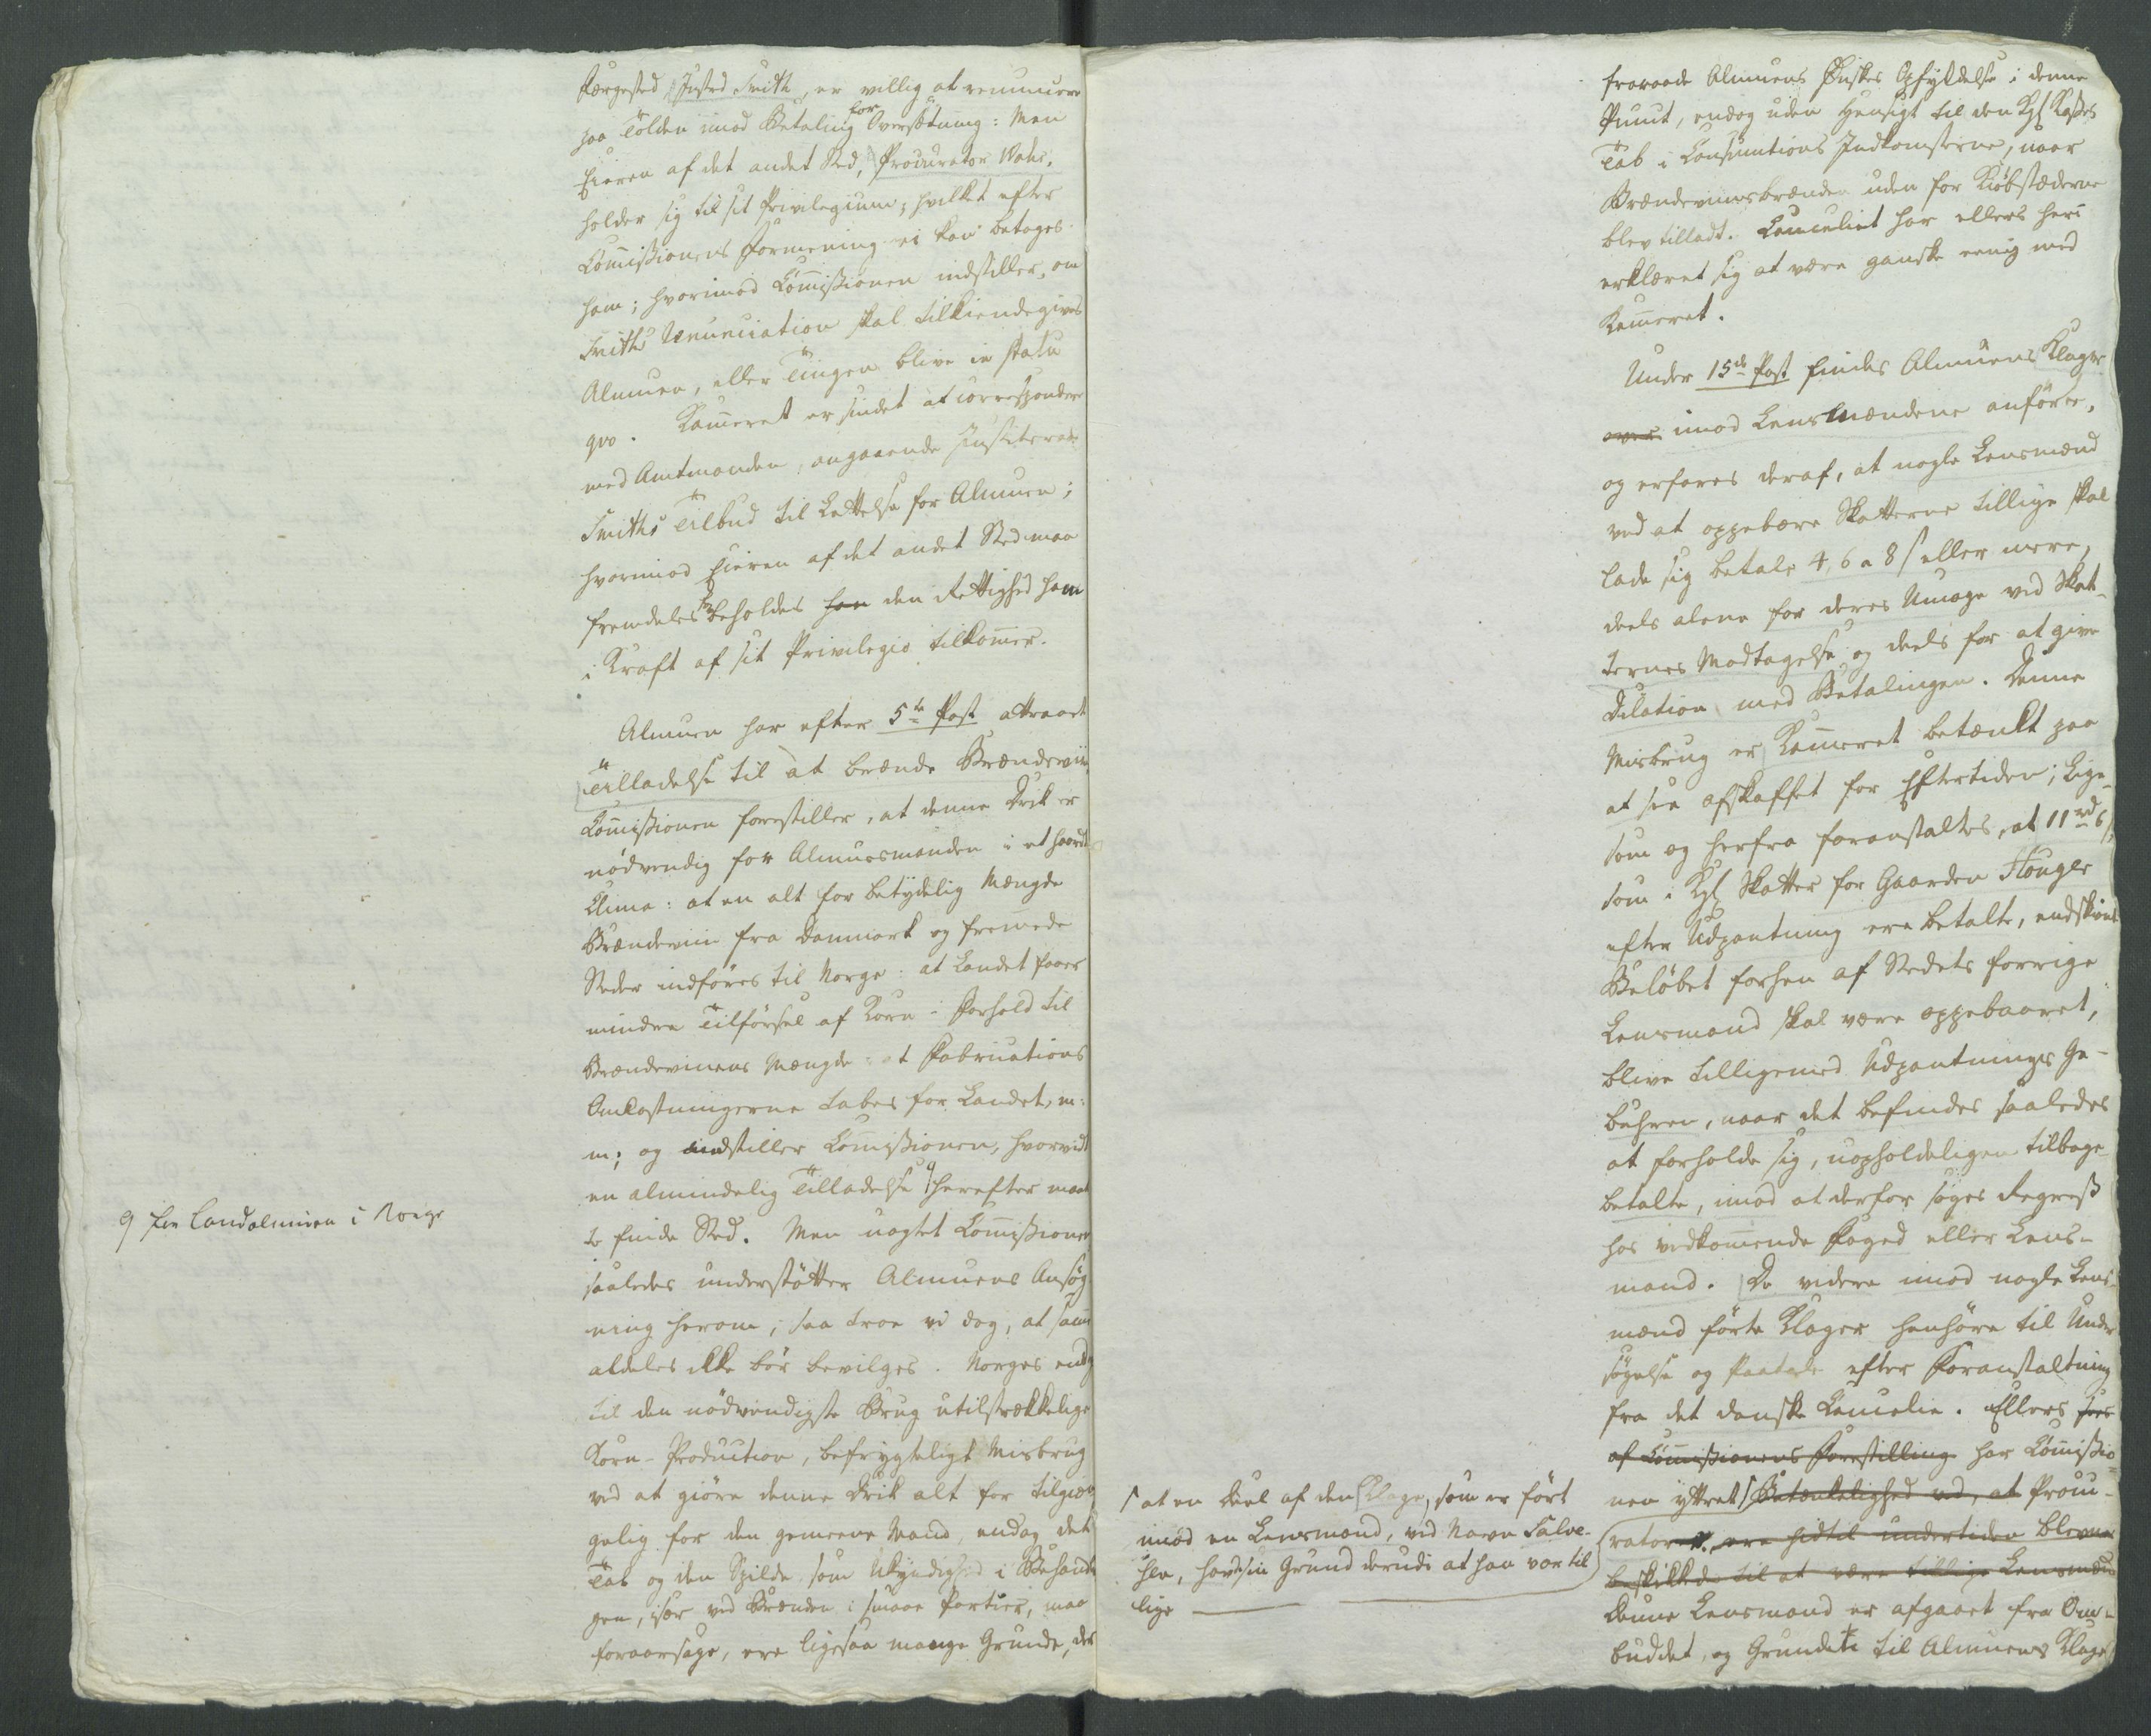 Færgested, Justrd Smith, er villig at renuncere
paa Tolden imod Betaling for Oversætning: Men
Eieren af det andet Sted, Procurator Wahr,
holder sig til sit Privilegium; hvilket efter
Commissionens Formening ei kan betages
ham; hvorimod Commissionen indstiller, om
Smiths Renunciation skal tilkiendegives
Almuen, eller Tingen blive in statu
qvo. Kammeret er sindet at correspondere
med Amtmanden, angaaende Justitsraad
Smiths Tilbud til Lettelse for Almuen;
hvorimod Eieren af det andet Sted maa
fremdeles beholdes han den Rettighed ham
i Kraft af sit Privilegio tilkommer.
Almuen har efter 5te Post attraaet
Tilladelse til at brænde Brændeviin.
Commissionen forestiller, at denne Drik er
nödvendig for Almuesmanden i et haardt
Clima: at en alt for betydelig Mængde
Brændeviin fra Danmark og fremmede
Steder indföres til Norge: at Landet faaer
mindre Tilförsel af Korn i Forhold til
Brændevinens Mængde: at Fabrications
Omkostningerne tabes for Landet, m:
m; og indstiller Commissionen, hvorvidt
en almindelig Tilladelse q herefter maat
te finde Sted. Men uagtet Commissionen
saaledes understötter Almuens Ansög
ning herom, saa troe vi dog, at samme
aldeles ikke bör bevilges. Norges endog
til den nödvendigste Brug utilstrækkelige
Korn-Production, befrygteligt Misbrug
ved at giöre denne Drik alt for tilgiæn
gelig for den gemeene Mand, endog det
Tab og den Spilde som Ukyndighed i Behandlin
gen, især ved Brænden i smaae Partier, maa
foraarsage, ere ligesaa mange Grunde, der
q for Landalmuen i Norge
fraraade Almuens Önskes Opfyldelse i denne
Punct, endog uden Hensigt til den Kgl Kasses
Tab i Consumtions Indkomsterne, naar
Brændeviinsbrænden uden for Kiöbstæderne
blev tilladt. Cancelliet har ellers heri
erklæret sig at være ganske eenig med
Kammeret.
Under 15de Post findes Almuens Klager
over imod Lensmændene anförte,
og erfares deraf, at nogle Lensmænd
ved at oppebære Skatterne tillige skal
lade sig betale 4, 6 a 8 s eller mere,
deels alene for deres Umage ved Skat-
ternes Modtagelse og deels for at give
Dilation med Betalingen. Denne
Misbrug er Kammeret betænkt paa
at see afskaffet for Eftertiden; Lige-
som og herfra foranstaltes, at 11 rd 6 s,
som i Kgl Skatter for Gaarden Flouger
efter Udpantning ere betalte, endskiönt
Belöbet forhen af Stedets forrige
Lensmand skal være oppebaaret,
blive tilligemed Udpantnings Ge-
bühren, naar det befindes saaledes
at forholde sig, uopholdeligen tilbage-
betalte, imod at derfor söges Regress
hos vedkommende Foged eller Lens-
mand. De videre imod nogle Lens-
mænd förte Klager henhöre til Under
sögelse og Paatale efter Foranstaltning
fra det danske Cancelie. Ellers sees
af Commissionens Forestilling har Commissio-
nen yttret ſ Betænkelighed ved, at Procu-
ratorer, ere hidtil undertiden blevne
beskikkede til at være tillige Lensmænd
Denne Lensmand er afgaaet fra Om-
buddet, og Grunden til Almuens Klage
ſ at en Deel af den Klage, som er fört
imod en Lensmand, ved Navn Salve-
sen, havde sin Grund derudi at han var til
lige